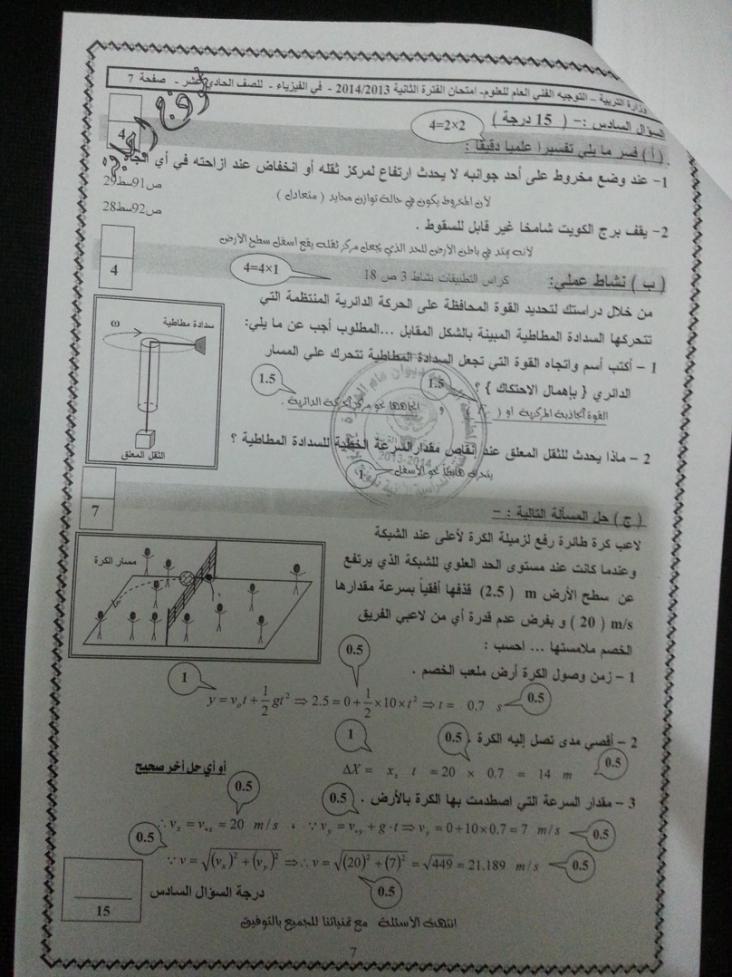 وزارة التربية – التوجيه الفني العام للعلوم- امتحان الفترة الثانية 2014/2013 - في الفيزياء - للصف الحادي عشر - صفحة 7
السؤال السادس :- ( 15 درجة )
4
( أ ) فسر ما يلي تفسيرا علميا دقيقا :
4=2×2
1- عند وضع مخروط على أحد جوانبه لا يحدث ارتفاع لمركز ثقله أو انخفاض عند ازاحته في أي اتجاه
ص91سط29
لأن المخروط يكون في حالة توازن محايد ( متعادل )
2- يقف برج الكويت شامخا غير قابل للسقوط .
ص92سط28
لأنه يمتد في باطن الأرض للحد الذي يجعل مركز ثقله يقع أسفل سطح الأرض
( ب ) نشاط عملي:
كراس التطبيقات نشاط 3 ص 18
4=4×1
4
من خلال دراستك لتحديد القوة المحافظة على الحركة الدائرية المنتظمة التي
تتحركها السدادة المطاطية المبينة بالشكل المقابل ...المطلوب أجب عن ما يلي:
1 – أكتب أسم واتجاه القوة التي تجعل السدادة المطاطية تتحرك علي المسار
الدائري { بإهمال الاحتكاك } ؟
1.5
1.5
القوة الجاذبة المركزية او (
و اتجاهها نحو مركز الحركة الدائرية .
2 – ماذا يحدث للثقل المعلق عند إنقاص مقدار السرعة الخطية للسدادة المطاطية ؟
يتحرك هابطاً نحو الأسفل
1
2013-2014
ω
سدادة مطاطية
الثقل المعلق
( ج ) حل المسألة التالية : –
7
لاعب كرة طائرة رفع لزميلة الكرة لأعلى عند الشبكة
وعندما كانت عند مستوى الحد العلوي للشبكة الذي يرتفع
عن سطح الأرض m ( 2.5) قذفها أفقياً بسرعة مقدارها
m/s ( 20 ) و بفرض عدم قدرة أي من لاعبي الفريق
الخصم ملامستها ... احسب :
مسار الكرة
1 – زمن وصول الكرة أرض ملعب الخصم .
1
0.5
y = v₀t + 1/2 gt² ⇒ 2.5 = 0 + 1/2 ×10×t² ⇒ t = 0.7 s
0.5
2 – أقصي مدى تصل إليه الكرة .
1
0.5
ΔX = xₓ t = 20 × 0.7 = 14 m
0.5
أو أي حل أخر صحيح
3 – مقدار السرعة التي اصطدمت بها الكرة بالأرض .
0.5
0.5
∴ vₓ = v₀ₓ = 20 m/s ، ∵ v_y = v₀y + g·t ⇒ v_y = 0+10×0.7 = 7 m/s
0.5
0.5
∵ v = √((vₓ)² + (v_y)²) ⇒ ∴ v = √((20)² + (7)²) = √449 = 21.189 m/s
0.5
0.5
درجة السؤال السادس
15
انتهت الأسئلة مع تمنياتنا للجميع بالتوفيق
7